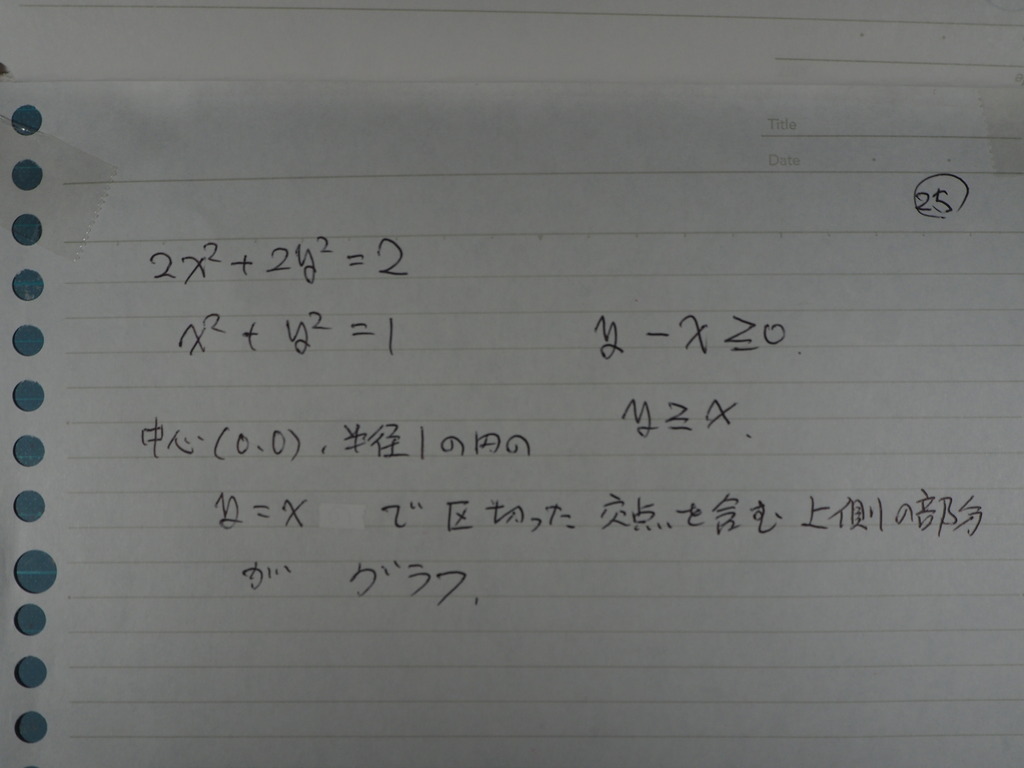 Title
Date
㉕
2x² + 2y² = 2
x² + y² = 1
y - x ≧ 0.
y ≧ x.
中心(0.0)、半径1の円の
y = x で区切った交点を含む上側の部分
が グラフ.